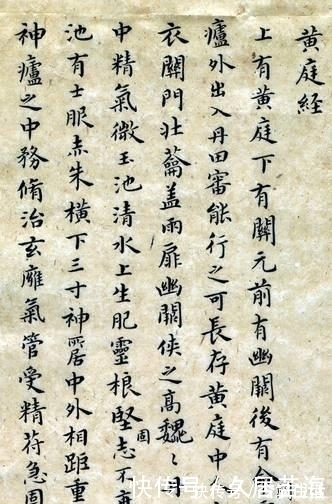 黄庭经
上有黄庭下有關元前有幽關後有命
廬外出入丹田審能行之可長存黄庭中
衣關門壮蘥盖兩扉幽關俠之高魏〻
中精氣微玉池清水上生肥靈根堅固志不衰
池有士服赤朱横下三寸神所居中外相距重
神廬之中務脩治玄廱氣管受精符急固